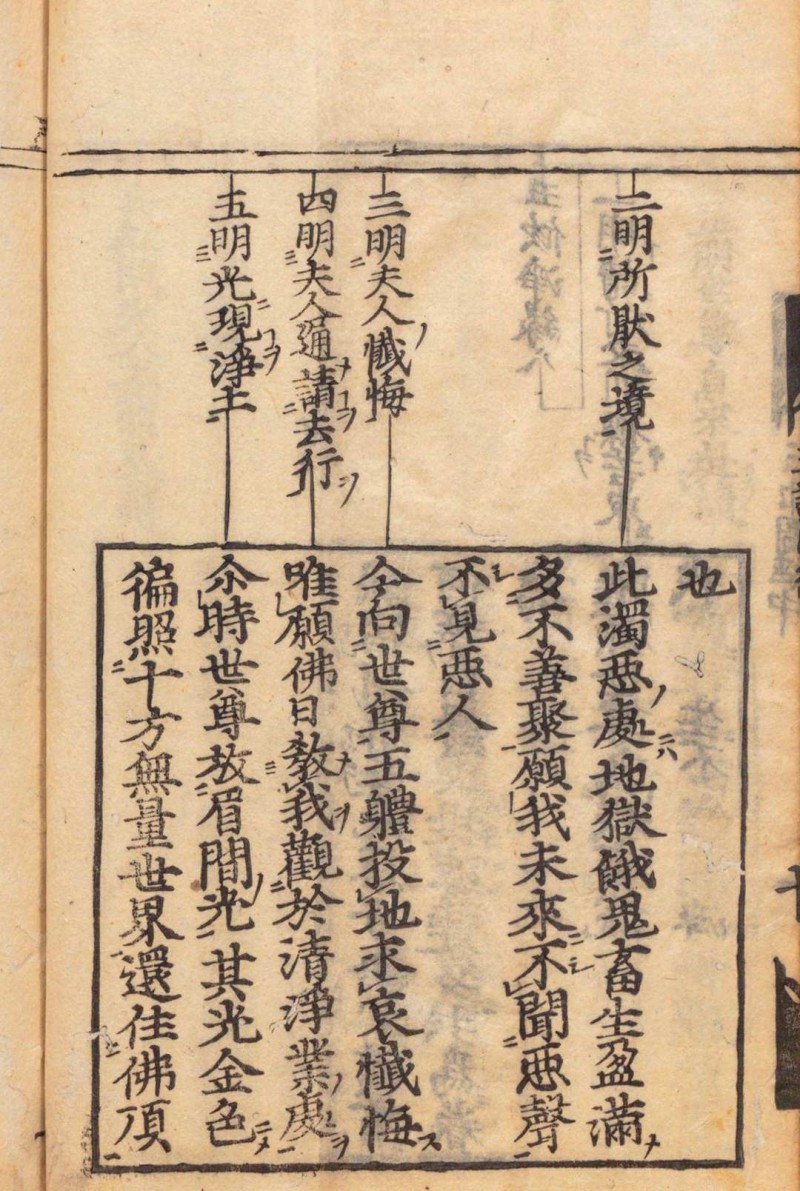 二明所猒之境
三明夫人懺悔
四明夫人通請去行
五明光現淨土
也
此濁惡處地獄餓鬼畜生盈滿
多不善聚願我未來不聞惡聲
不見惡人
今向世尊五軆投地求哀懺悔
唯願佛日敎我觀於清淨業處
尒時世尊放眉間光其光金色
徧照十方無量世界還住佛頂